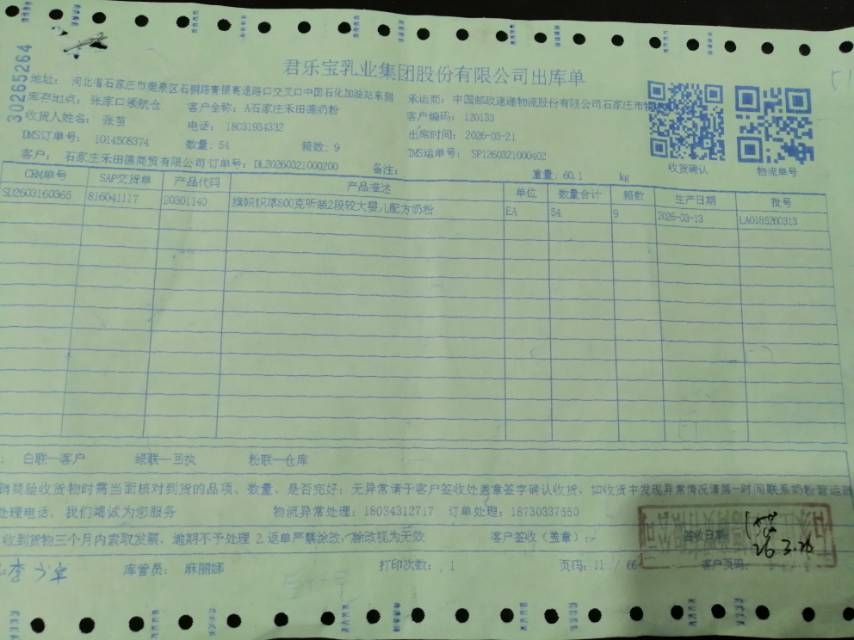 30265264
君乐宝乳业集团股份有限公司出库单
地址: 河北省石家庄市鹿泉区石铜路青银高速路口交叉口中国石化加油站东侧
承运商: 中国邮政速递物流股份有限公司石家庄市
库存地点: 张家口领航仓 客户全称: A石家庄禾田莲奶粉
客户编码: 120133
收货人姓名: 张 电话: 18031934332
出库时间: 2026-03-21
DMS订单号: 1014508374 数量: 54 箱数: 9
TMS运单号: SP1260321000402
客户: 石家庄禾田莲商贸有限公司 订单号: DL20260321000200 备注:
重量: 60.1 kg
收货确认 物流单号
CRM单号 SAP交货单 产品代码 产品描述 单位 数量合计 箱数 生产日期 批号
SO2603160365 816041117 20301140 旗帜帜尊800克听装2段较大婴儿配方奶粉 EA 54 9 2026-03-13 LA0185260313
: 白联一客户 绿联一回执 粉联一仓库
验收货物时需当面核对到货的品项、数量、是否完好; 无异常请于客户签收处盖章签字确认收货, 如收货中发现异常情况请第一时间联系奶粉营运
处理电话, 我们竭诚为您服务 物流异常处理: 18034312717 订单处理: 18730337550
收到货物三个月内索取发票, 逾期不予处理 2.返单严禁涂改, 涂改视为无效 客户签收(盖章): 签收日期
26.3.26
库管员: 麻丽娜 打印次数: 1 页码: 11 / 66 客户页码: